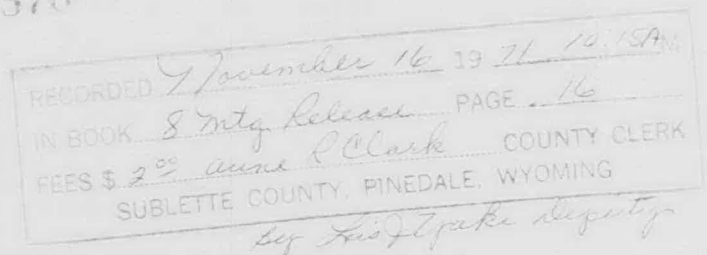 RECORDED November 16 1971 10:15 A.M.
IN BOOK 8 Mtg Release PAGE 16
FEES $ 2 00 COUNTY CLERK
SUBLETTE COUNTY, PINEDALE, WYOMING
By Deputy